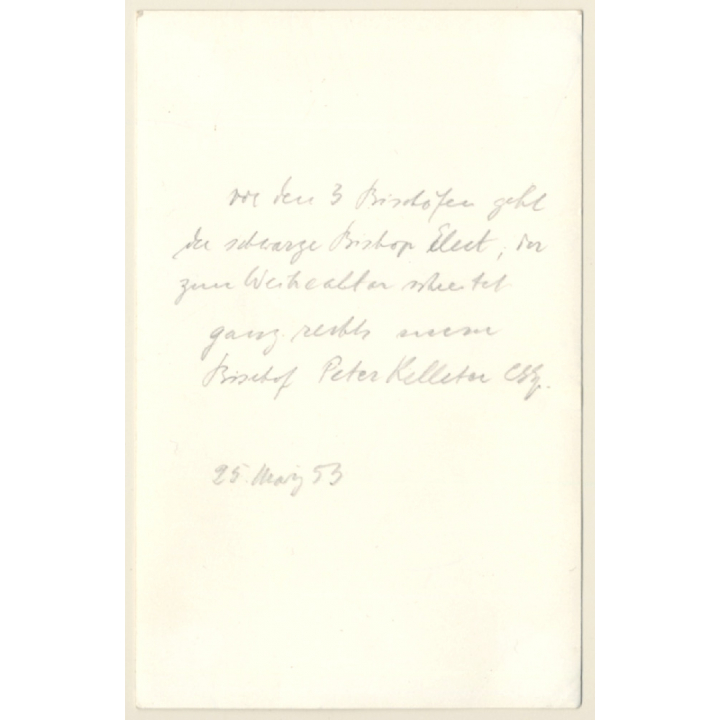 vor den 3 Bischöfen geht
der schwarze Bishop Elect, der
zum Weihealtar schreitet
ganz rechts unser
Bischof Peter Kelleter CSSp.
25. März 53